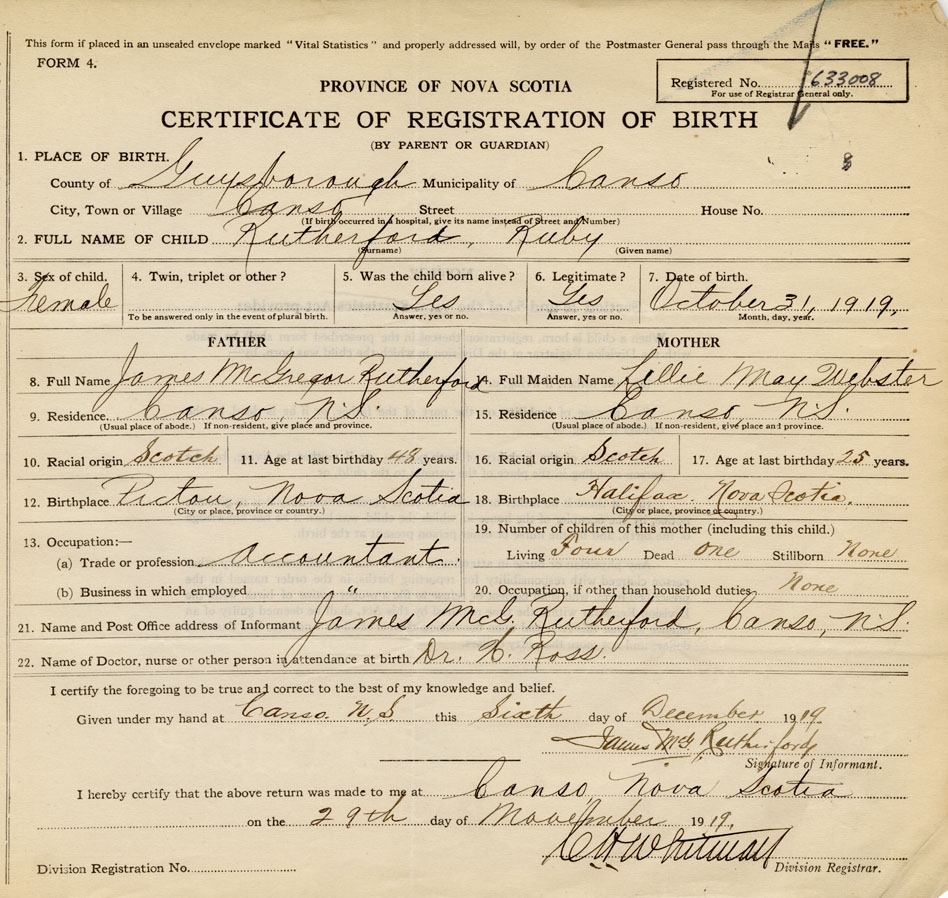 This form if placed in an unsealed envelope marked "Vital Statistics" and properly addressed will, by order of the Postmaster General pass through the Mails "FREE."
FORM 4.
Registered No. 633008
For use of Registrar General only.
PROVINCE OF NOVA SCOTIA
CERTIFICATE OF REGISTRATION OF BIRTH
(BY PARENT OR GUARDIAN)
1. PLACE OF BIRTH.
County of Guysborough Municipality of Canso
City, Town or Village Canso Street House No.
(If birth occurred in a hospital, give its name instead of Street and Number)
2. FULL NAME OF CHILD Rutherford, Ruby
(Surname) (Given name)
3. Sex of child. 4. Twin, triplet or other? 5. Was the child born alive? 6. Legitimate? 7. Date of birth.
Female Yes Yes October 31, 1919.
To be answered only in the event of plural birth. Answer, yes or no. Answer, yes or no. Month, day, year.
FATHER MOTHER
8. Full Name James McGregor Rutherford 14. Full Maiden Name Lillie May Webster
9. Residence. Canso N.S. 15. Residence Canso N.S.
(Usual place of abode.) If non-resident, give place and province. (Usual place of abode.) If non-resident, give place and province.
10. Racial origin Scotch 11. Age at last birthday 48 years. 16. Racial origin Scotch 17. Age at last birthday 25 years.
12. Birthplace Pictou, Nova Scotia 18. Birthplace Halifax. Nova Scotia.
(City or place, province or country.) (City or place, province or country.)
19. Number of children of this mother (including this child.)
13. Occupation:—
(a) Trade or profession accountant. Living Four Dead one Stillborn None
(b) Business in which employed " 20. Occupation, if other than household duties None
21. Name and Post Office address of Informant James McG. Rutherford, Canso, N.S.
22. Name of Doctor, nurse or other person in attendance at birth Dr. H. Ross.
I certify the foregoing to be true and correct to the best of my knowledge and belief.
Given under my hand at Canso. N.S this Sixth day of December 1919.
James McG Rutherford
Signature of Informant.
I hereby certify that the above return was made to me at Canso Nova Scotia
on the 29th day of November 1919.
C H Whitman
Division Registration No. Division Registrar.